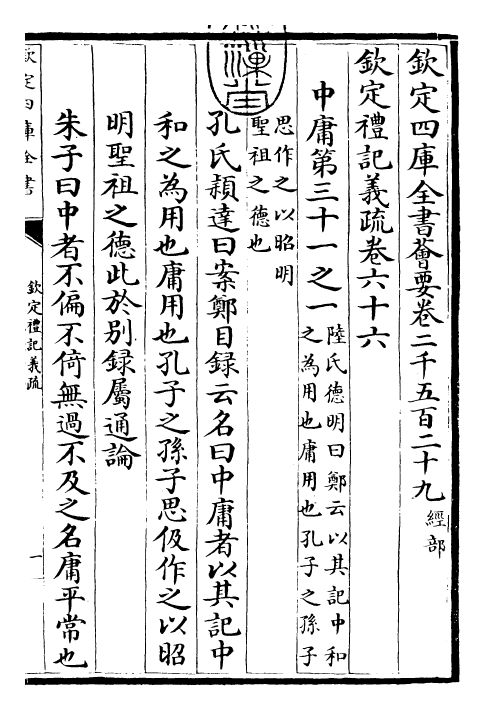 欽定四庫全書薈要卷二千五百二十九 經部
欽定禮記義疏卷六十六
中庸第三十一之一
陸氏德明曰鄭云以其記中和
之為用也庸用也孔子之孫子
思作之以昭明
聖祖之德也
孔氏穎達曰案鄭目録云名曰中庸者以其記中
和之為用也庸用也孔子之孫子思伋作之以昭
明聖祖之德此於别録屬通論
朱子曰中者不偏不倚無過不及之名庸平常也
欽定四庫全書
欽定禮記義疏
一